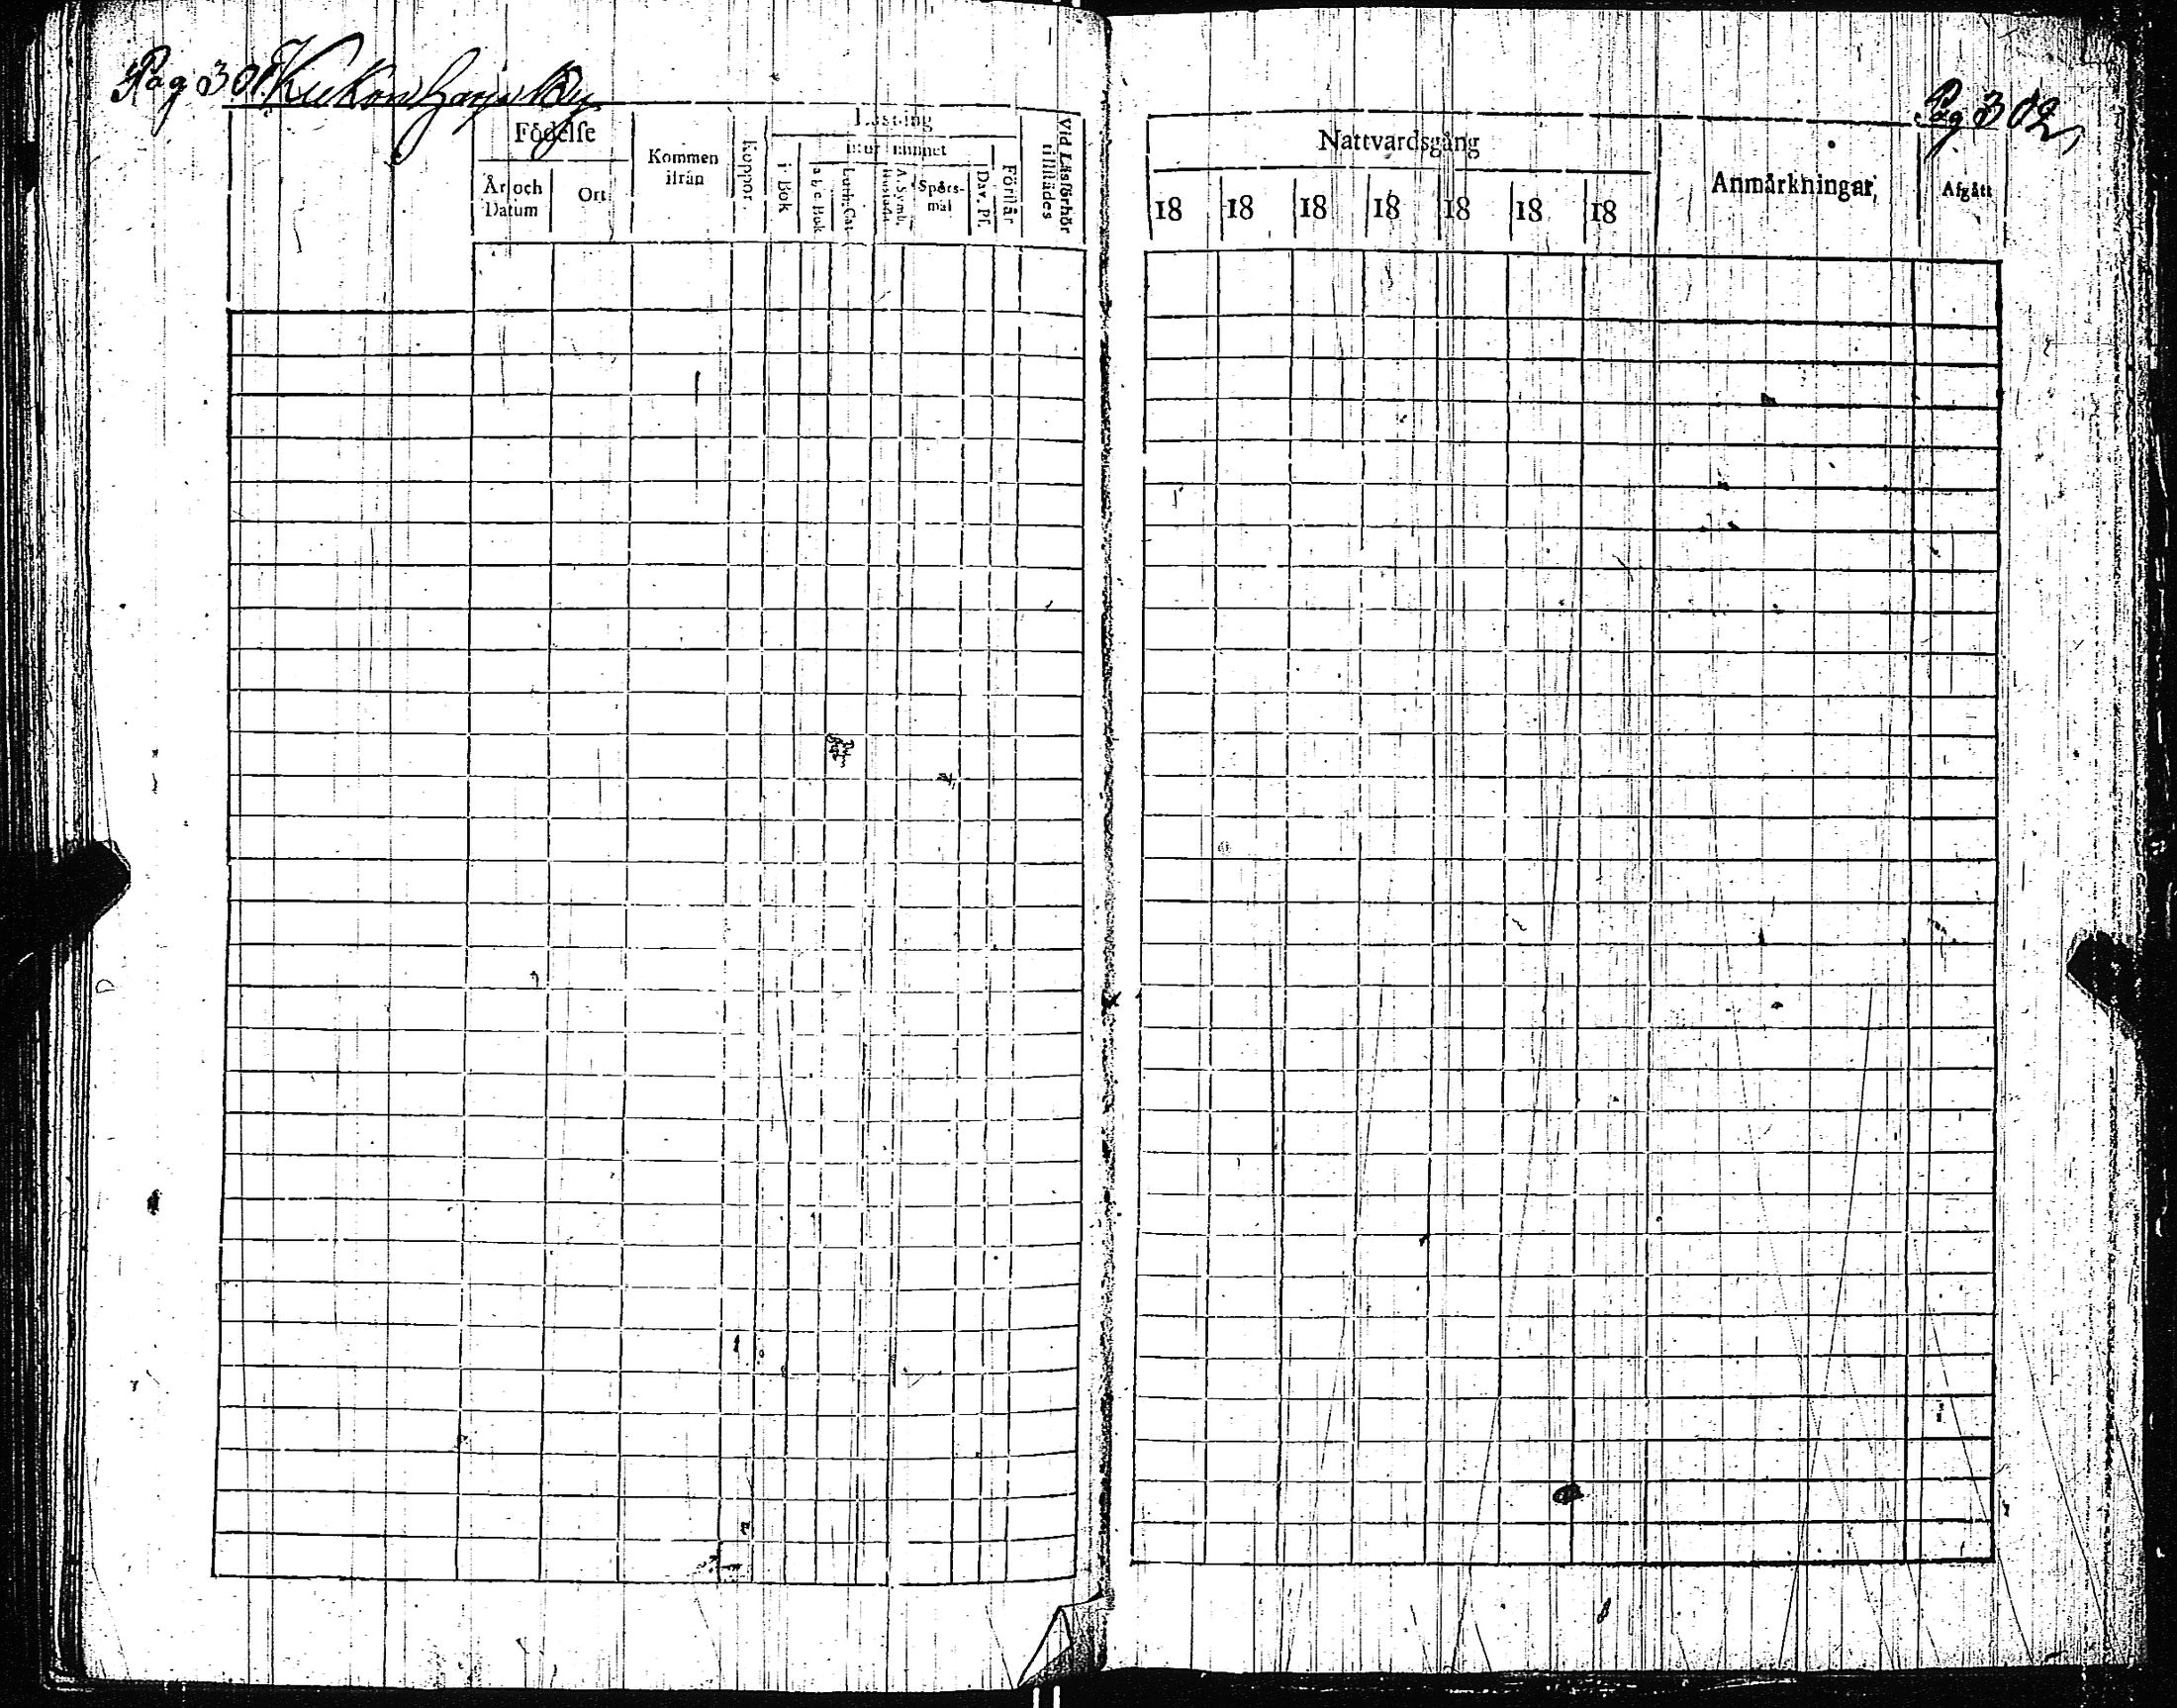 Pag 301. Kukonharju By
Pag 302
Födelse
År och Datum
Ort
Kommen ifrån
Koppor.
Läsning
i Bok
utur minnet
a b c Bok
Luth. Cat.
Hustafla
A. Symb.
Spörs-
mål
Dav. Ps.
Förstår
Vid Läsförhör
tillstädes
Nattvardsgång
18 18 18 18 18 18 18
Anmärkningar,
Afgått